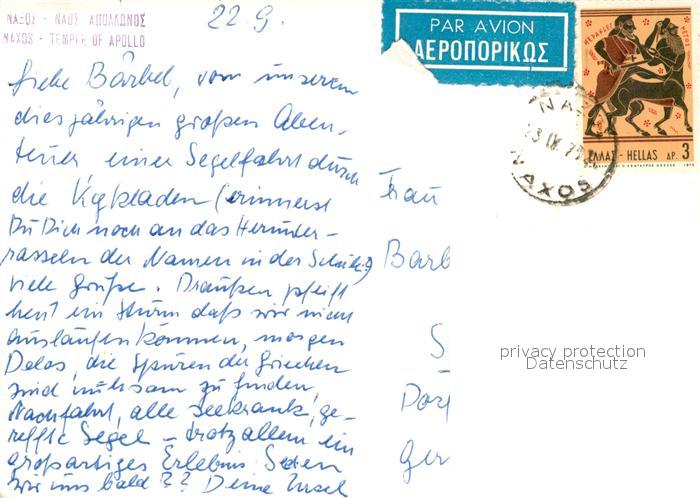 ΝΑΞΟΣ - ΝΑΟΣ ΑΠΟΛΛΩΝΟΣ
NAXOS - TEMPLE OF APOLLO
22.9.
PAR AVION
ΑΕΡΟΠΟΡΙΚΩΣ
Liebe Bärbel, von unserem
diesjährigen großen Aben-
teuer einer Segelfahrt durch
die Kykladen (erinnerst
Du Dich noch an das Herunter-
rasseln der Namen in der Schule?)
viele Grüße. Draußen pfeift
heut ein Sturm daß wir nicht
auslaufen können, morgen
Delos, die Spuren der Griechen
sind mühsam zu finden,
Nachtfahrt, alle seekrank, ge-
reffte Segel - trotz allem ein
großartiges Erlebnis. Sehen
wir uns bald?? Deine Ursel
Frau
Barb
S
Dorf
ger
HERAKLES
ΕΛΛΑΣ - HELLAS ΔΡ. 3
NAXOS
privacy protection
Datenschutz